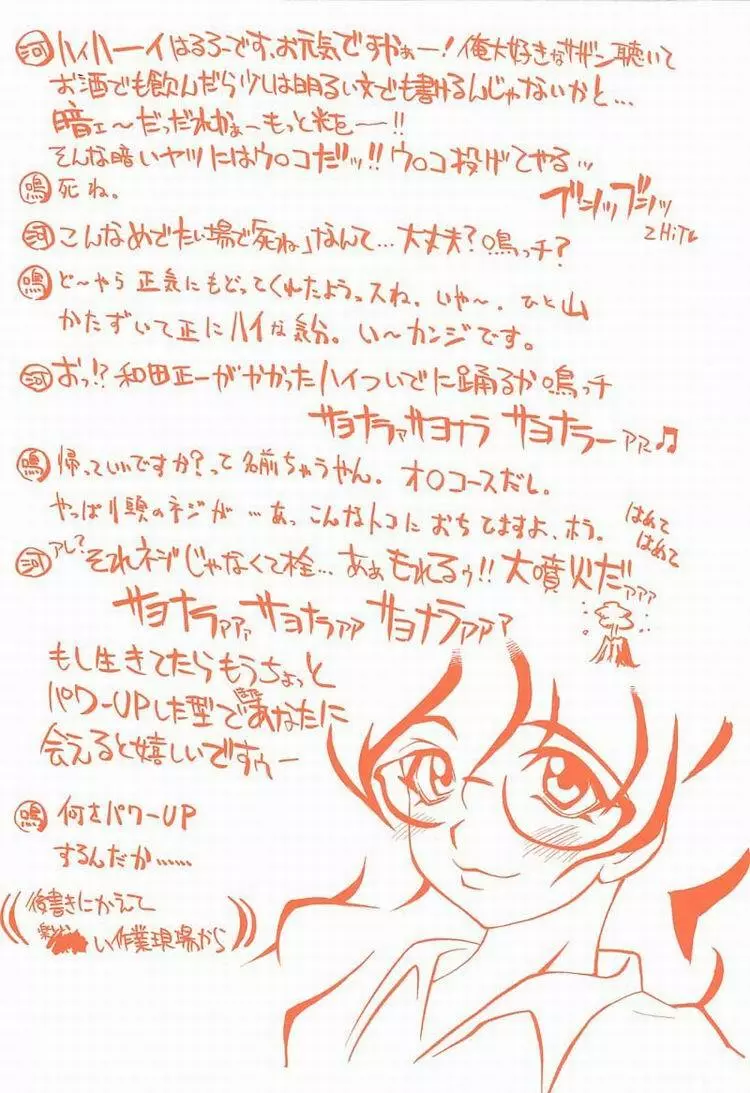 河 ハイハーイはろろーです、お元気ですかぁー!俺大好きなサザン聴いて
お酒でも飲んだら少しは明るい文でも書けるんじゃないかと…
暗ェ〜だっだれかぁーもっと粒をー!!
そんな暗いヤツにはウ○コだッ!!ウ○コ投げてやるッ
ブシッブシッ
2HiTレ
鳴 死ね。
河 こんなめでたい場で死ね」なんて…大丈夫?鳴っチ?
鳴 ど〜やら正気にもどってくれたようっスね。いや〜、ひと山
かたずいて正にハイな気分。い〜カンジです。
河 おっ!?和田正一がやかったハイついでに踊るか鳴っチ
サヨナラァサヨナラ サヨナラーァァ♫
鳴 帰っていいですか?って名前ちゃうやん。オ○コースだし。
やっぱり頭のネジが…あっこんなトコにおちてますよ、ホラ。
はめて
はめて
河 アレ?それネジじゃなくて栓…あぁもれるぅ!!大噴火だァァァ
サヨナラァァァサヨナラァァァサヨナラァァァ
もし生きてたらもうちょっと
パワーUPした型であなたに
会えると嬉しいですゥー
鳴 何をパワーUP
するんだか……
後書きにかえて
い作業現場から